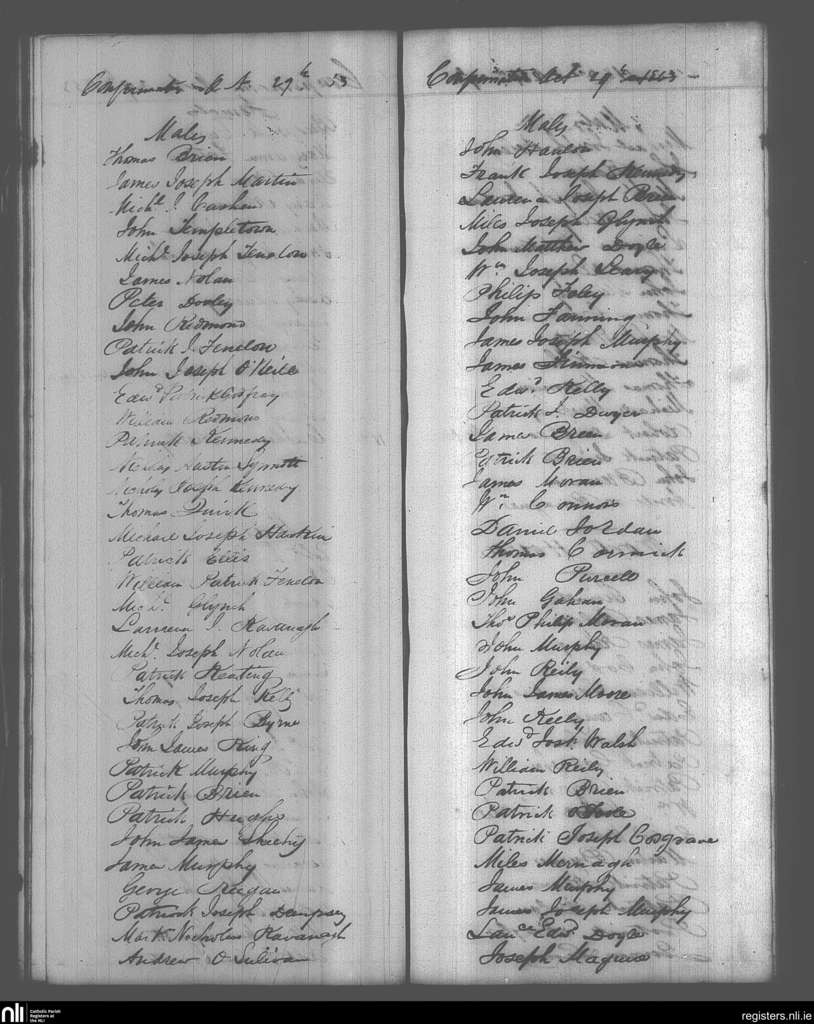 Confirmation Oct. 29th 53
Males
Thomas Brien
James Joseph Martin
Michl. J. Cashen
John Templetown
Michl. Joseph Fenelon
James Nolan
Peter Dooley
John Redmond
Patrick J. Fenelon
John Joseph O'Neile
Edwd. Patrick Cosfray
William Redmond
Patrick Kennedy
Austin Synnott
Joseph Kennedy
Thomas Quirk
Michael Joseph Haskin
Patrick Ellis
William Patrick Fenelon
Michl. Glynch
J. Kavanagh
Michl. Joseph Nolan
Patrick Keating
Thomas Joseph Kelly
Patrick Joseph Byrne
John James King
Patrick Murphy
Patrick Brien
Patrick Hughs
John James Sheehy
James Murphy
George Reegan
Patrick Joseph Dempsey
Mark Nicholas Kavanagh
Andrew O Sulivan
Confirmation Oct 29th 1853
Males
John Hanlon
Frank Joseph Kennedy
Laurence Joseph Brien
Miles Joseph Glynch
John Matthew Doyle
Wm Joseph Leary
Philip Foley
John Fanning
James Joseph Murphy
James
Edwd. Kelly
Patrick J. Dwyer
James Breen
Patrick Brien
James Moran
Wm Connors
Daniel Jordan
Thomas Cormick
John Purcell
John Gahan
Thos Philip Moran
John Murphy
John Reily
John James Moore
John Keely
Edwd Josh. Walsh
William Reily
Patrick Brien
Patrick oToole
Patrick Joseph Cosgrave
Miles Mernagh
James Murphy
James Joseph Murphy
Lauce Edwd Doyle
Joseph Maguire
nli
Catholic Parish
Registers at
the NLI
registers.nli.ie